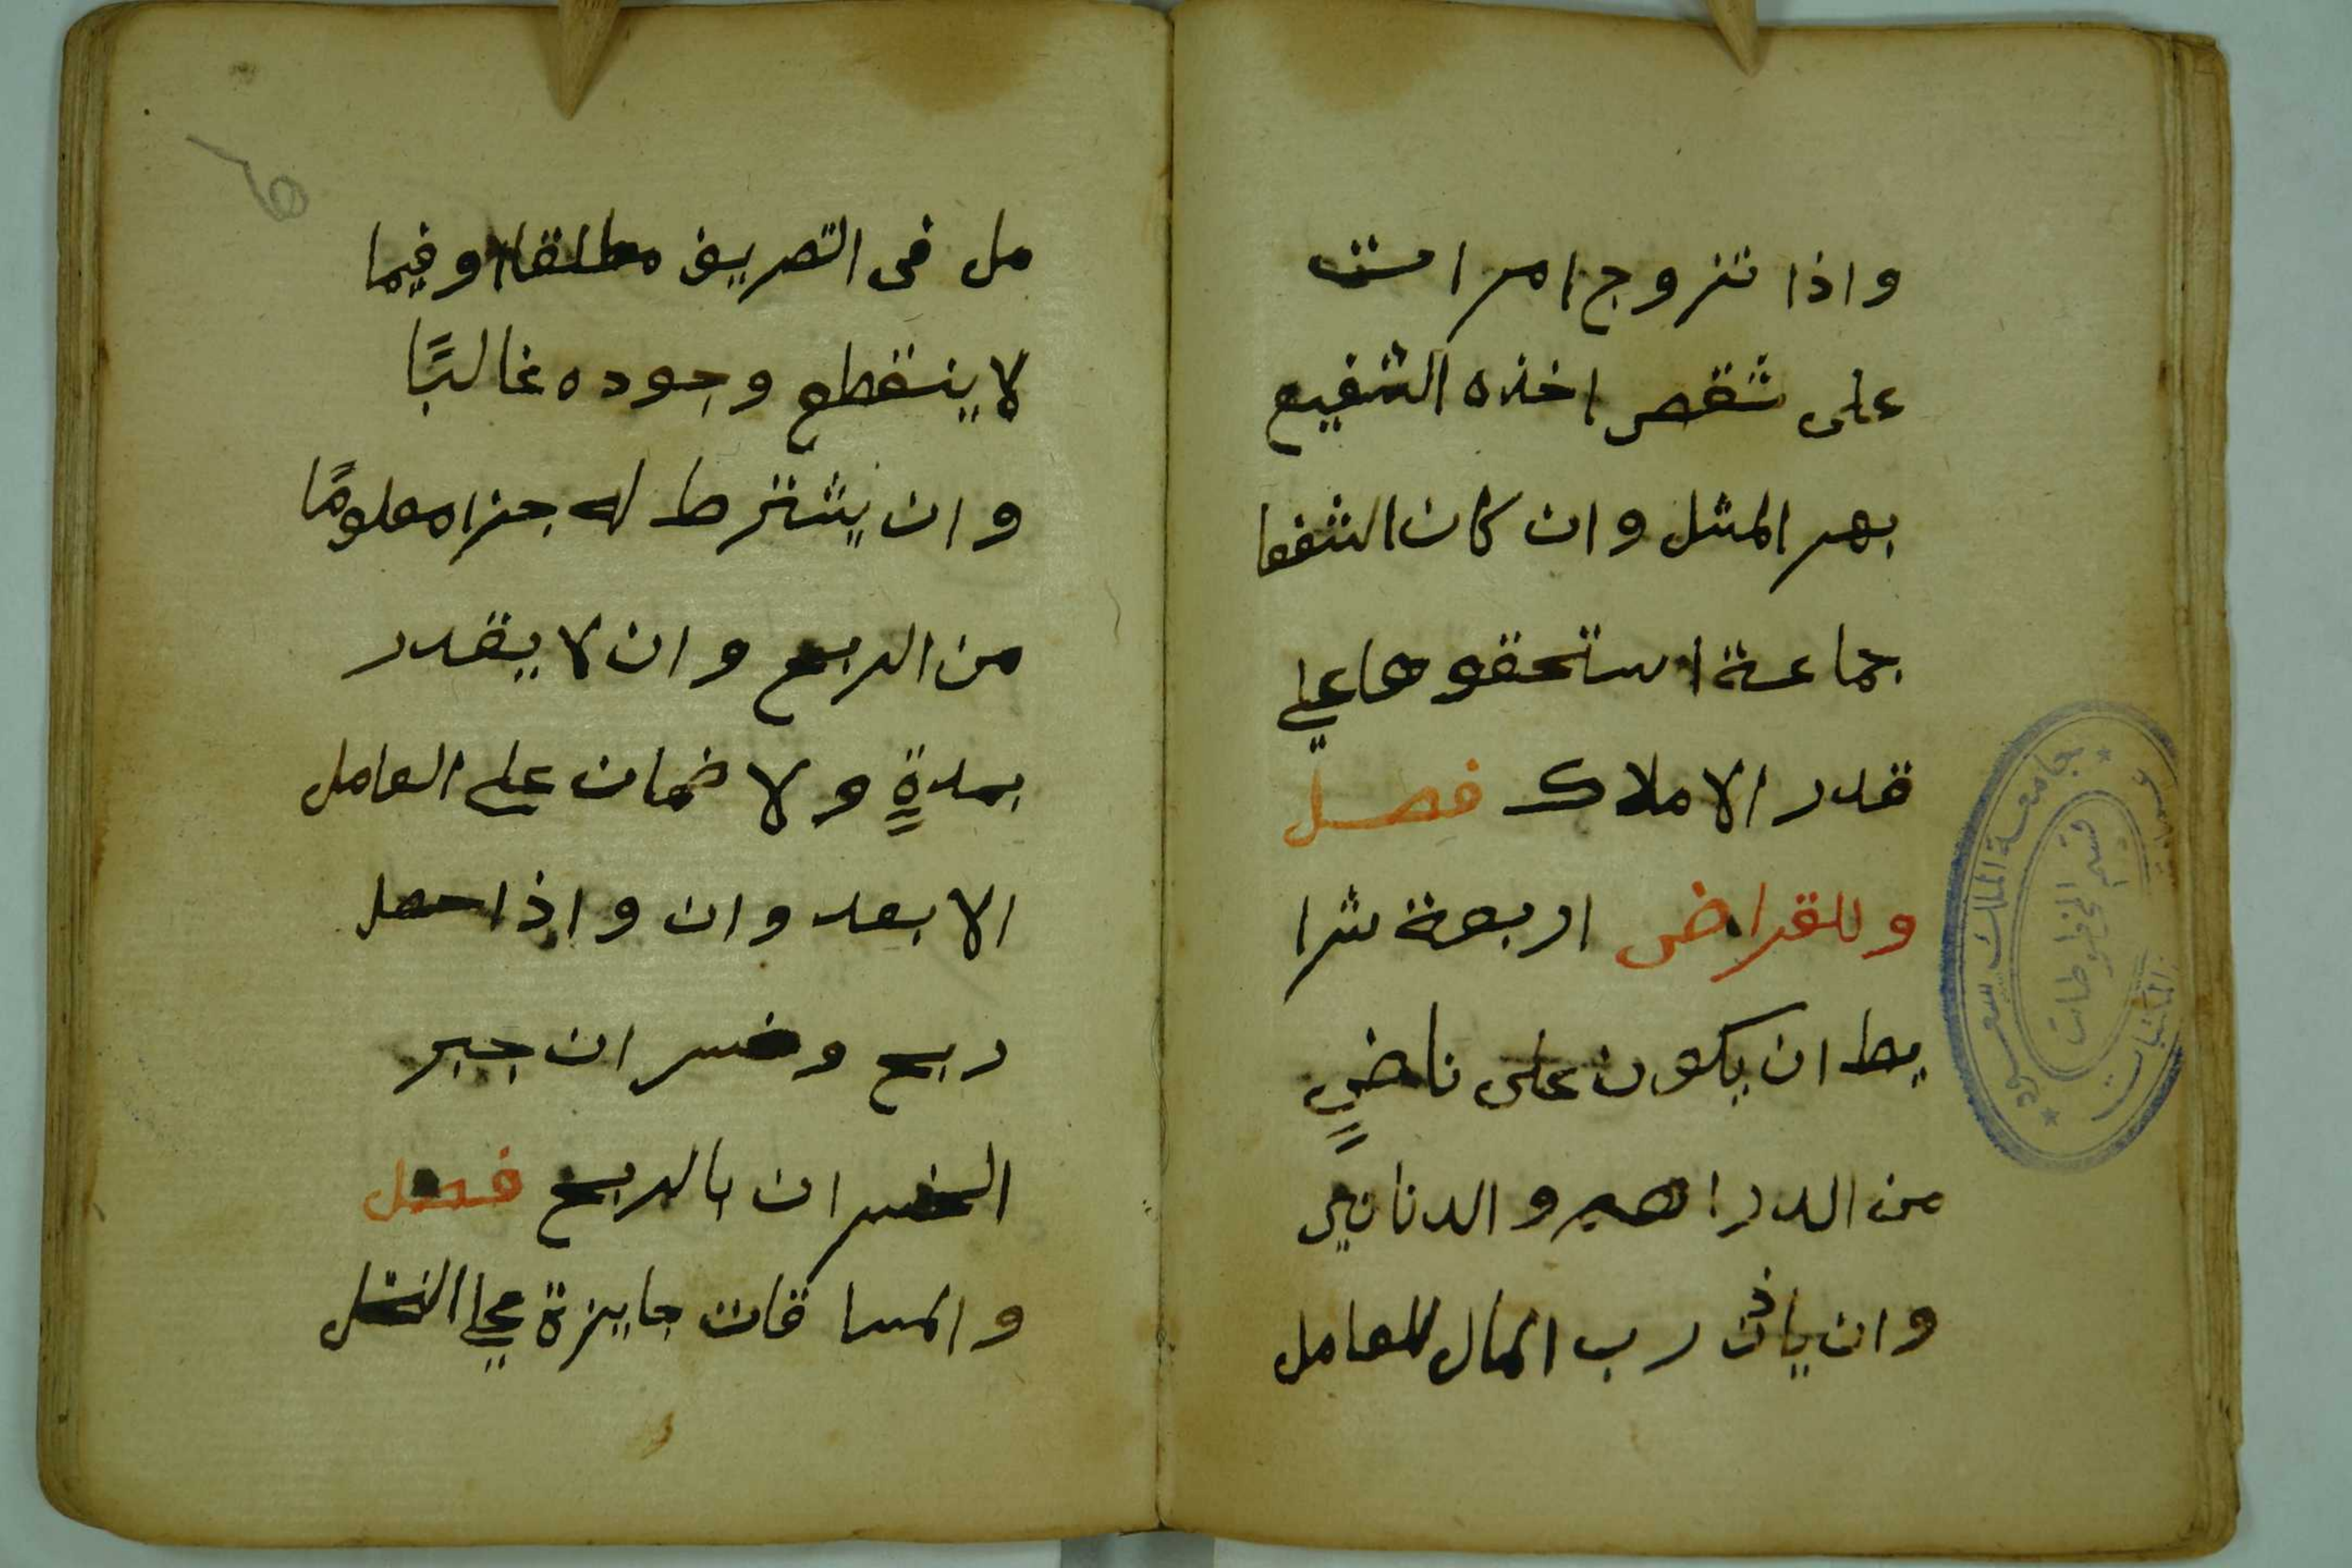 واذا تزوج امرات
على شقص اخذه الشفيع
بهر المثل وان كان الشفعا
جماعة استحقوها علي
قدر الاملاك فصل
وللقراض اربعة شرا
يط ان يكون على ناضٍ
من الدراهم والدنانير
وان ياذن رب المال للعامل
مل في التصريف مطلقا او فيما
لا ينقطع وجوده غالبًا
وان يشترط له جزا معلومًا
من الربح وان لا يقدر
بمدةٍ ولا ضمان على العامل
الا بعدوان واذا حصل
ربح وخسران جبر
الخسران بالربح فصل
والمساقات جايزة علي النخل
جامعة الملك سعود
قسم المخطوطات